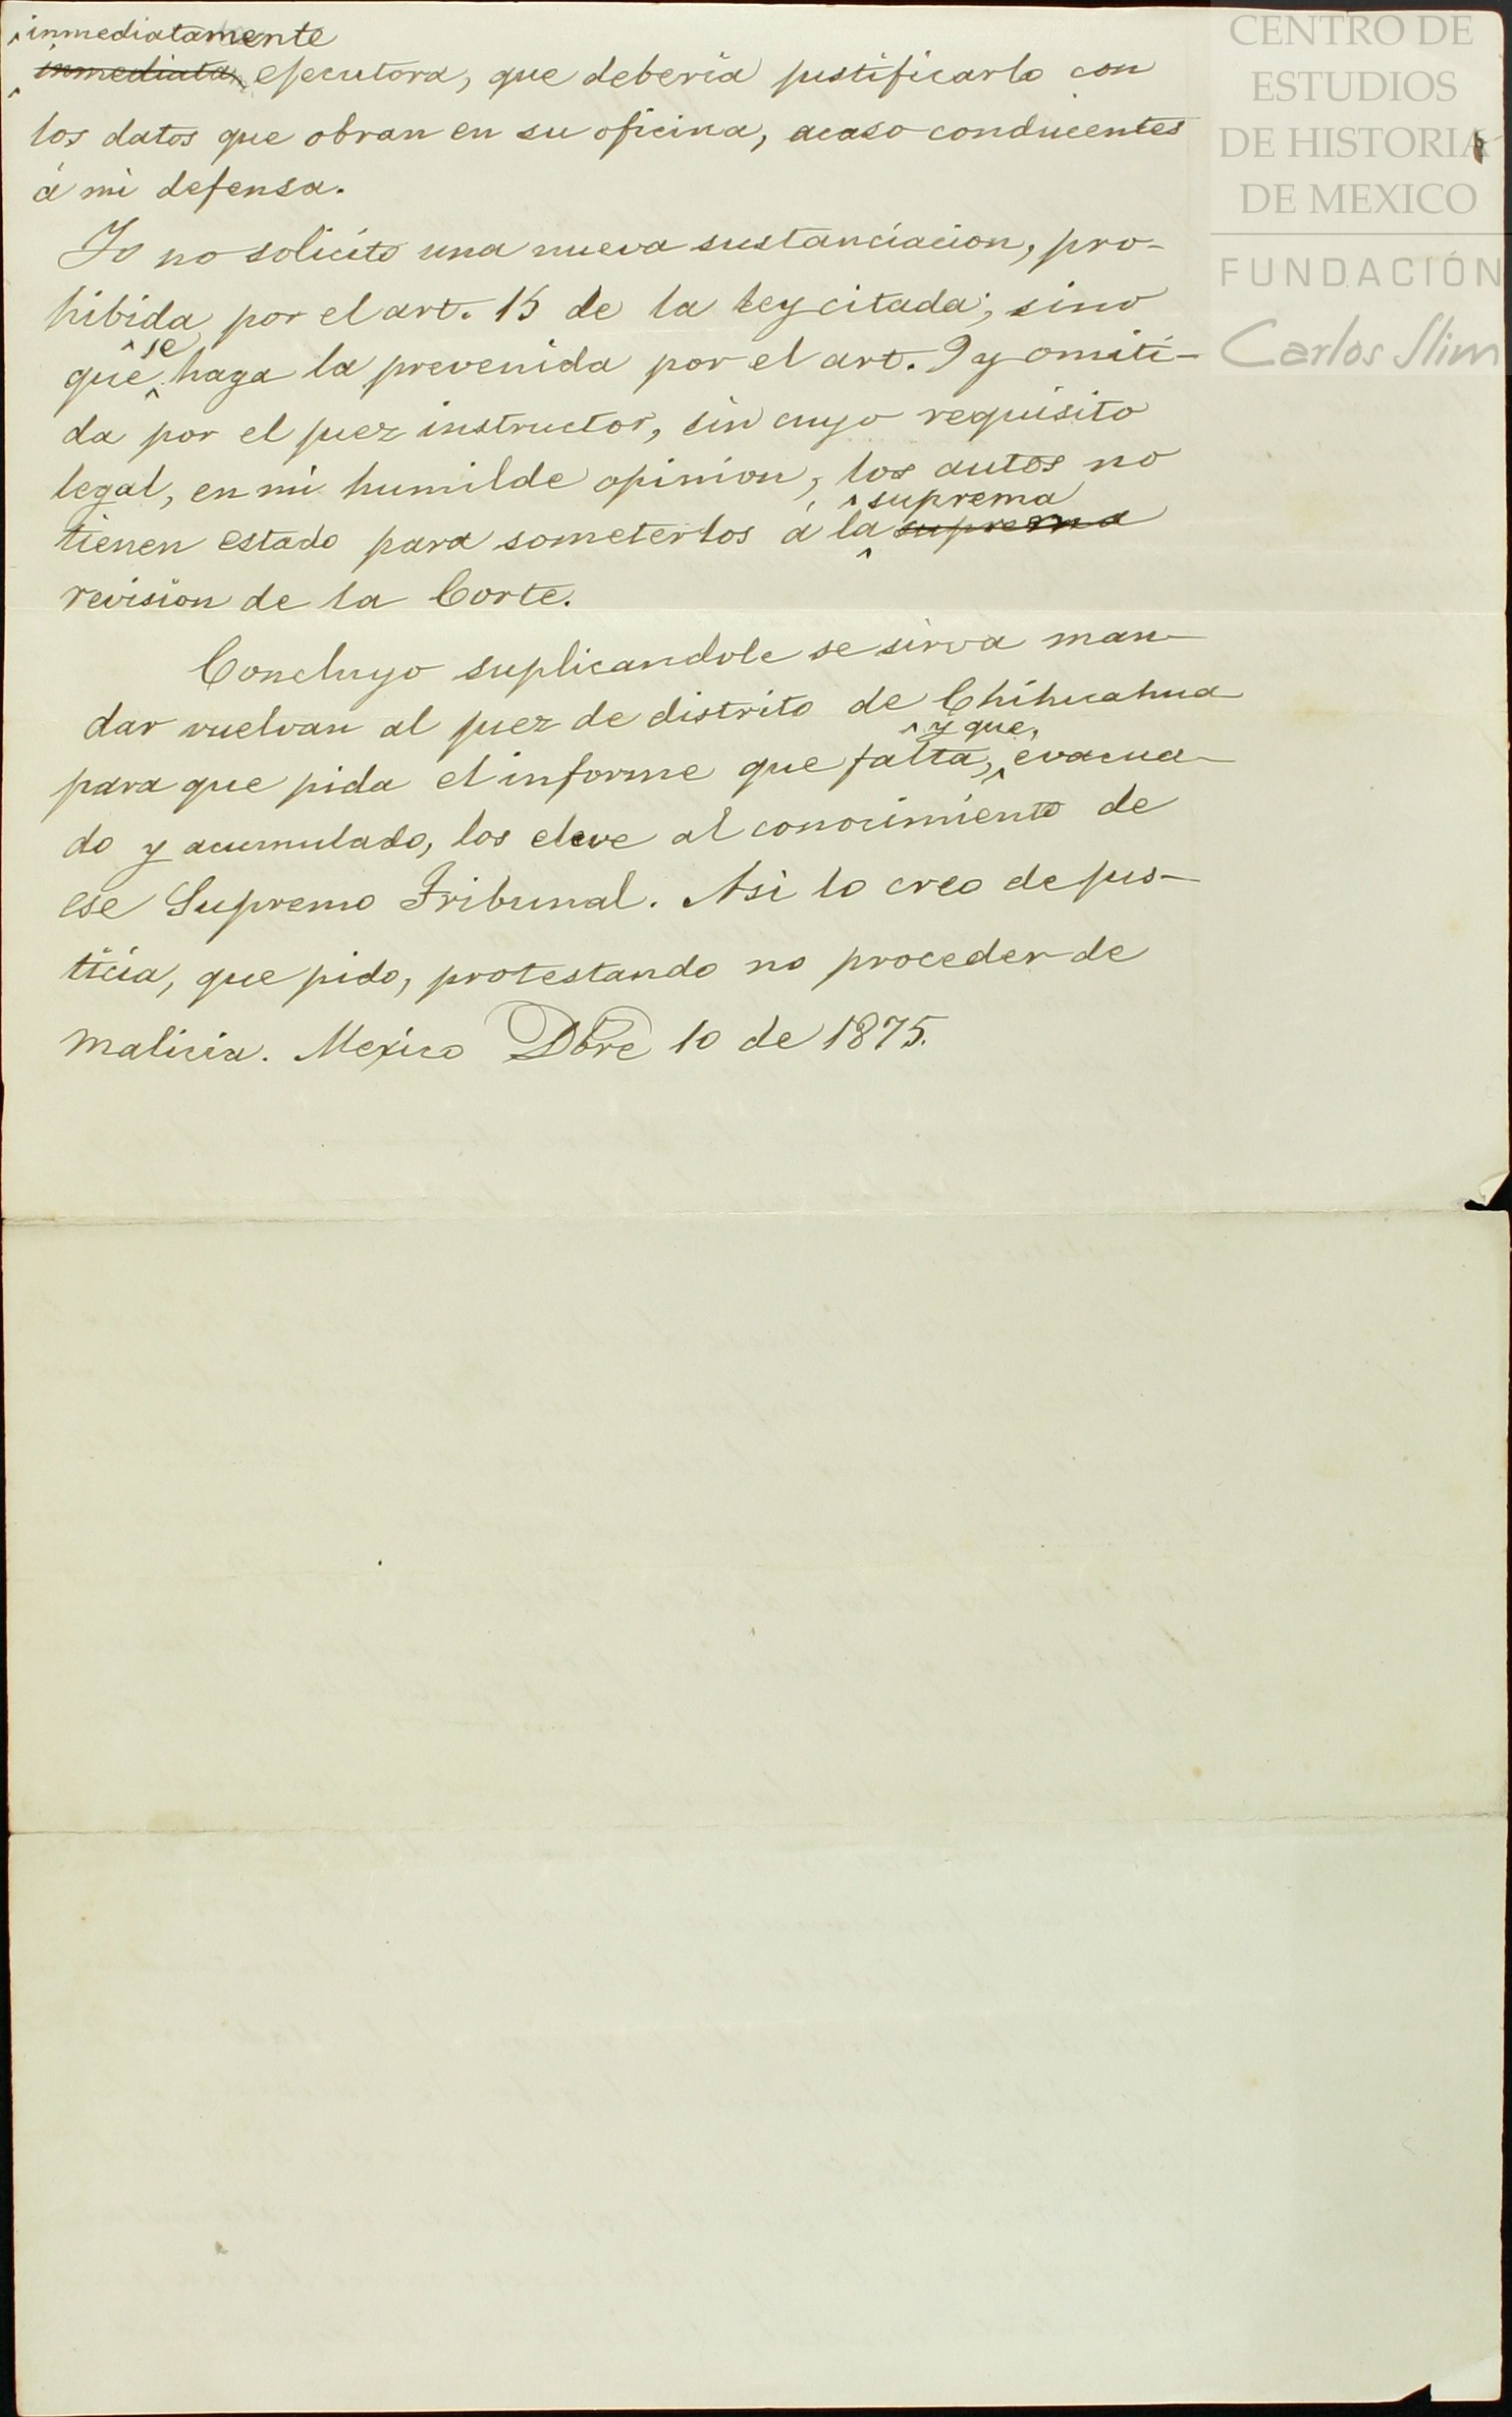 ^inmediatamente
inmediata ejecutora, que debería justificarlo con
los datos que obran en su oficina, acaso conducentes
á mi defensa.
Yo no solicito una nueva sustanciacion, pro-
hibida por el art. 15 de la ley citada; sino
^se
que haga la prevenida por el art. 9 y omiti-
da por el juez instructor, sin cuyo requisito
legal, en mi humilde opinion, los autos no
^suprema
tienen estado para someterlos á la suprema
revision de la Corte.
Concluyo suplicandole se sirva man-
dar vuelvan al juez de distrito de Chihuahua
^y que,
para que pida el informe que falta, evacua-
do y acumulado, los eleve al conocimiento de
ese Supremo Tribunal. Asi lo creo de jus-
ticia, que pido, protestando no proceder de
malicia. Mexico Dbre 10 de 1875.
CENTRO DE
ESTUDIOS
DE HISTORIA
DE MEXICO
FUNDACIÓN
Carlos Slim